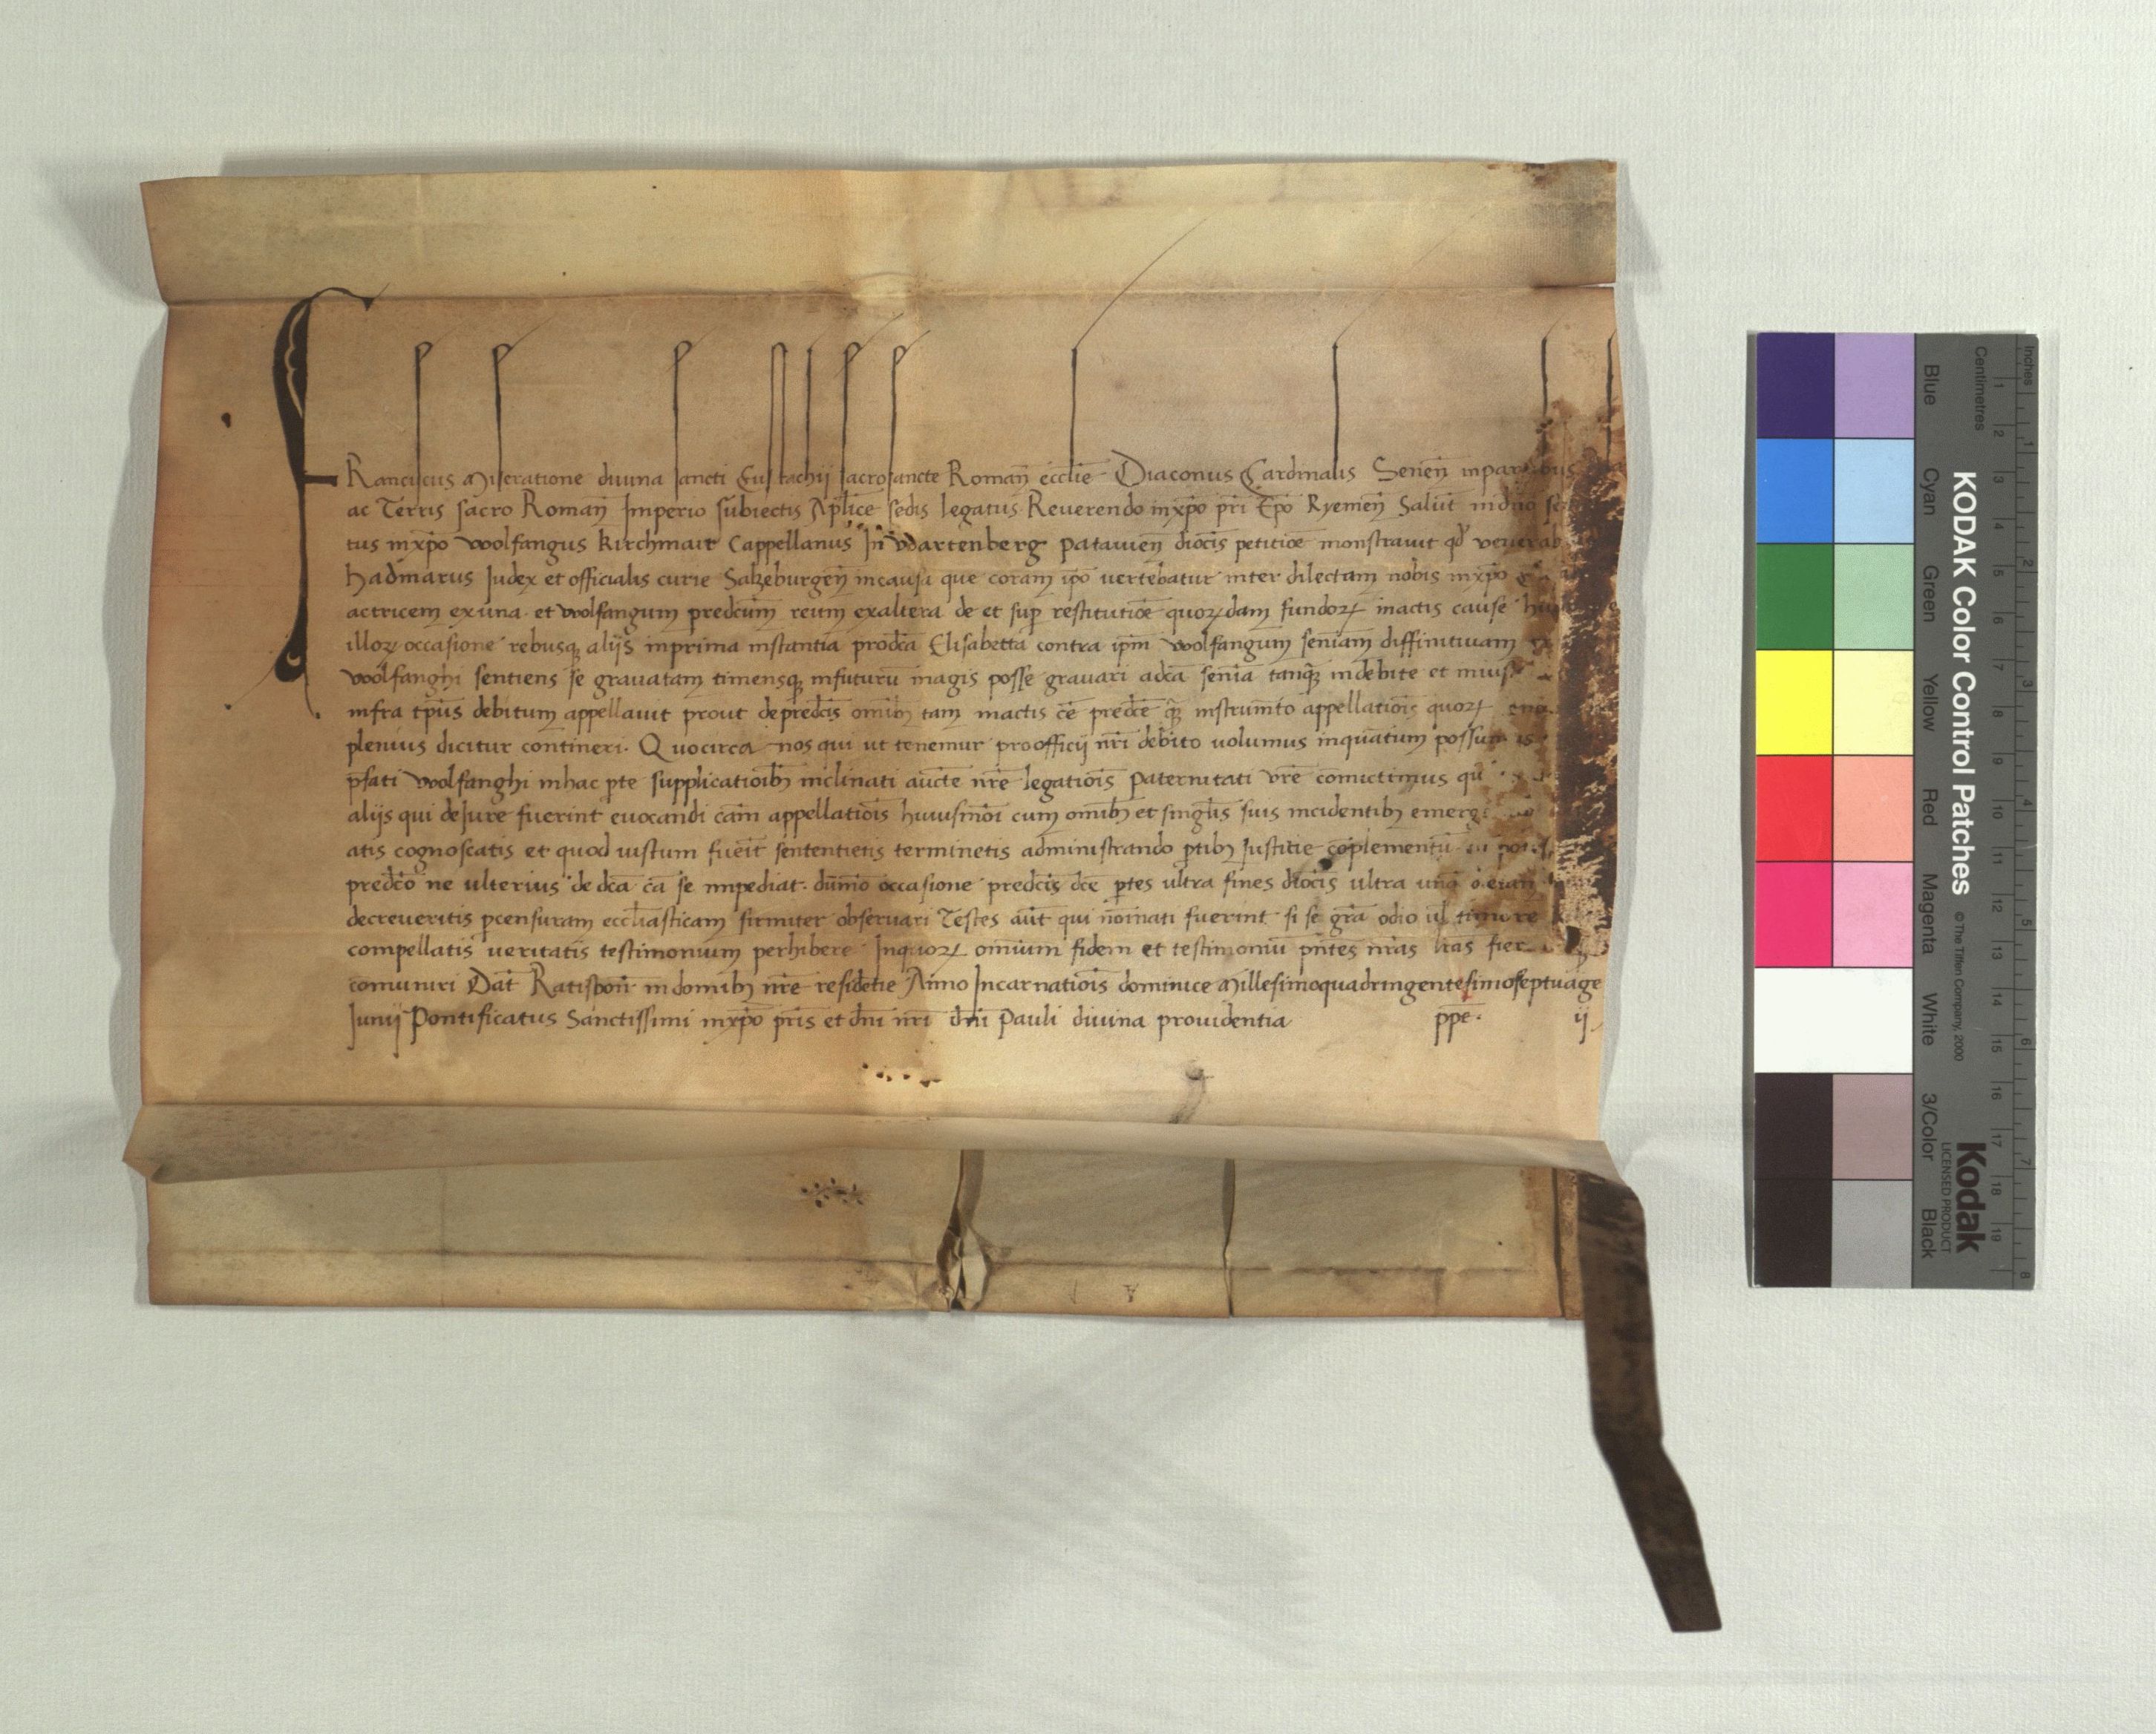 FRanciscus Miseratione divina sancti Eustachij sacrosancte Roman̄ ecclīe Diaconus Cardinalis Senen̄ in partibus
ac Terris sacro Roman̄ Imperio subiectis Ap̄lice sedis legatus Reuerendo in xp̄o pr̄i Ep̄o Kyemen̄ Salūt in dn̄o
tus in xp̄o Wolfangus Kirchmair Cappellanus In Wartenberg patauien̄ dioc̄is petitiōe monstrauit qd̄
Hadmarus Judex et officialis curie Salzeburgen̄ in causa que coram ip̄o vertebatur inter dilectam nobis in xp̄o
actricem ex una et Wolfangum predc̄um reum ex altera de et sup̄ restitutiōe quorꝝdam fundorꝝ in actis cause
illorꝝ occasione rebusqꝫ alijs in prima instantia pro dc̄a Elisabetta contra ip̄m Wolfangum sen̄iam diffinitiuam
Wolfanghi sentiens se grauatam timensqꝫ in futurū magis posse grauari a dc̄a sen̄ia tanqꝫ indebite et
infra tp̄us debitum appellauit prout de predc̄is om̄ibꝫ tam in actis cē predc̄e qꝫ instrum̄to appellatiōis quorꝝ
plenius dicitur contineri. Quocirca nos qui ut tenemur pro officij nr̄i debito volumus in quātum possumus
p̄fati Wolfanghi in hac p̄te supplicatiōibꝫ inclinati auctē nr̄e legatiōis paternitati vr̄e comictimus
alijs qui de Jure fuerint euocandi cām appellatiōis huiusmōi cum om̄ibꝫ et singul̄is suis incidentibꝫ
atis cognoscatis et quod iustum fuēit sententietis terminetis administrando p̄tibꝫ Justitie cōplementū
predc̄o ne ulterius de dc̄a cā se impediat. dūmō occasione predc̄is dc̄e p̄tes ultra fines dioc̄is ultra unā
decreueritis p̄ censuram eccl̄iasticam firmiter obseruari Testes aūt qui nōinati fuerint si se grā odio ul̄ timore
compellatis veritatis testimonium perhibere Inquorꝝ omium fidem et testimoniū pn̄tes nr̄as lr̄as
comuniri Dat̄ Ratispon̄ in domibꝫ nr̄e residētie Anno Incarnatiōis dominice Millesimoquadringentesimoseptuage
Junij Pontificatus Sanctissimi in xp̄o pr̄is et dn̄i nr̄i dn̄i Pauli diuina prouidentia pp̄e. ij
KODAK Color Control Patches
© The Tiffen Company, 2000
Kodak
LICENSED PRODUCT
Inches
Centimetres
1 2 3 4 5 6 7 8 9 10 11 12 13 14 15 16 17 18 19
1 2 3 4 5 6 7 8
Blue
Cyan
Green
Yellow
Red
Magenta
White
3/Color
Black